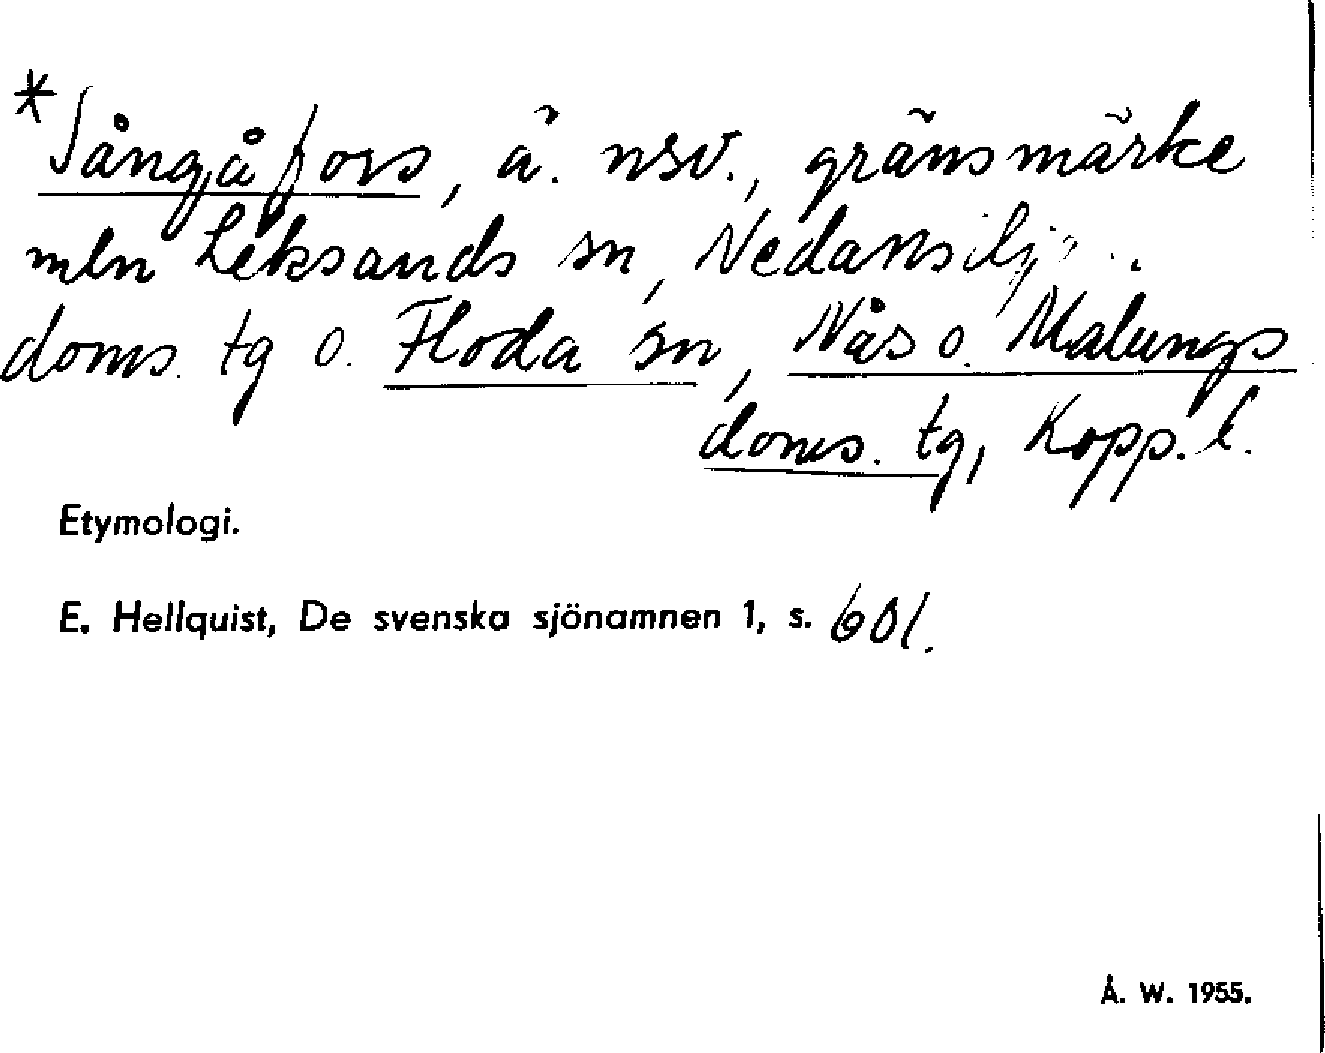 *Sångåfors, ä. nsv., gränsmärke
mln Leksands sn, Nedansilj..
doms. tg o. Floda sn, Nås o. Malungs
doms. tg, Kopp. l.
Etymologi.
E. Hellquist, De svenska sjönamnen 1, s. 601.
Å. W. 1955.